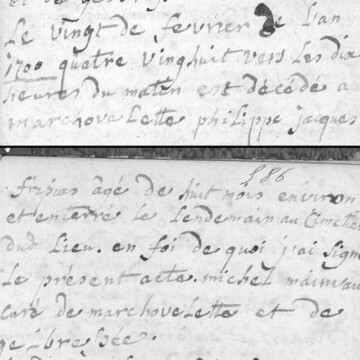 Le vingt de fevrier de L'an
1700 quatre vinghuit vers les dix
heures du matin est décédé a
marchovelette philippe jacques
586
fizpias agé de huit mois environ
et enterré le Lendemain au Cimetier
dud Lieu. en foi de quoi j'ai signé
Le présent acte. michel
curé de marchovelette et de